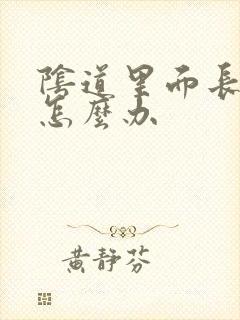 陰道里而長
怎麼办
黄静芬